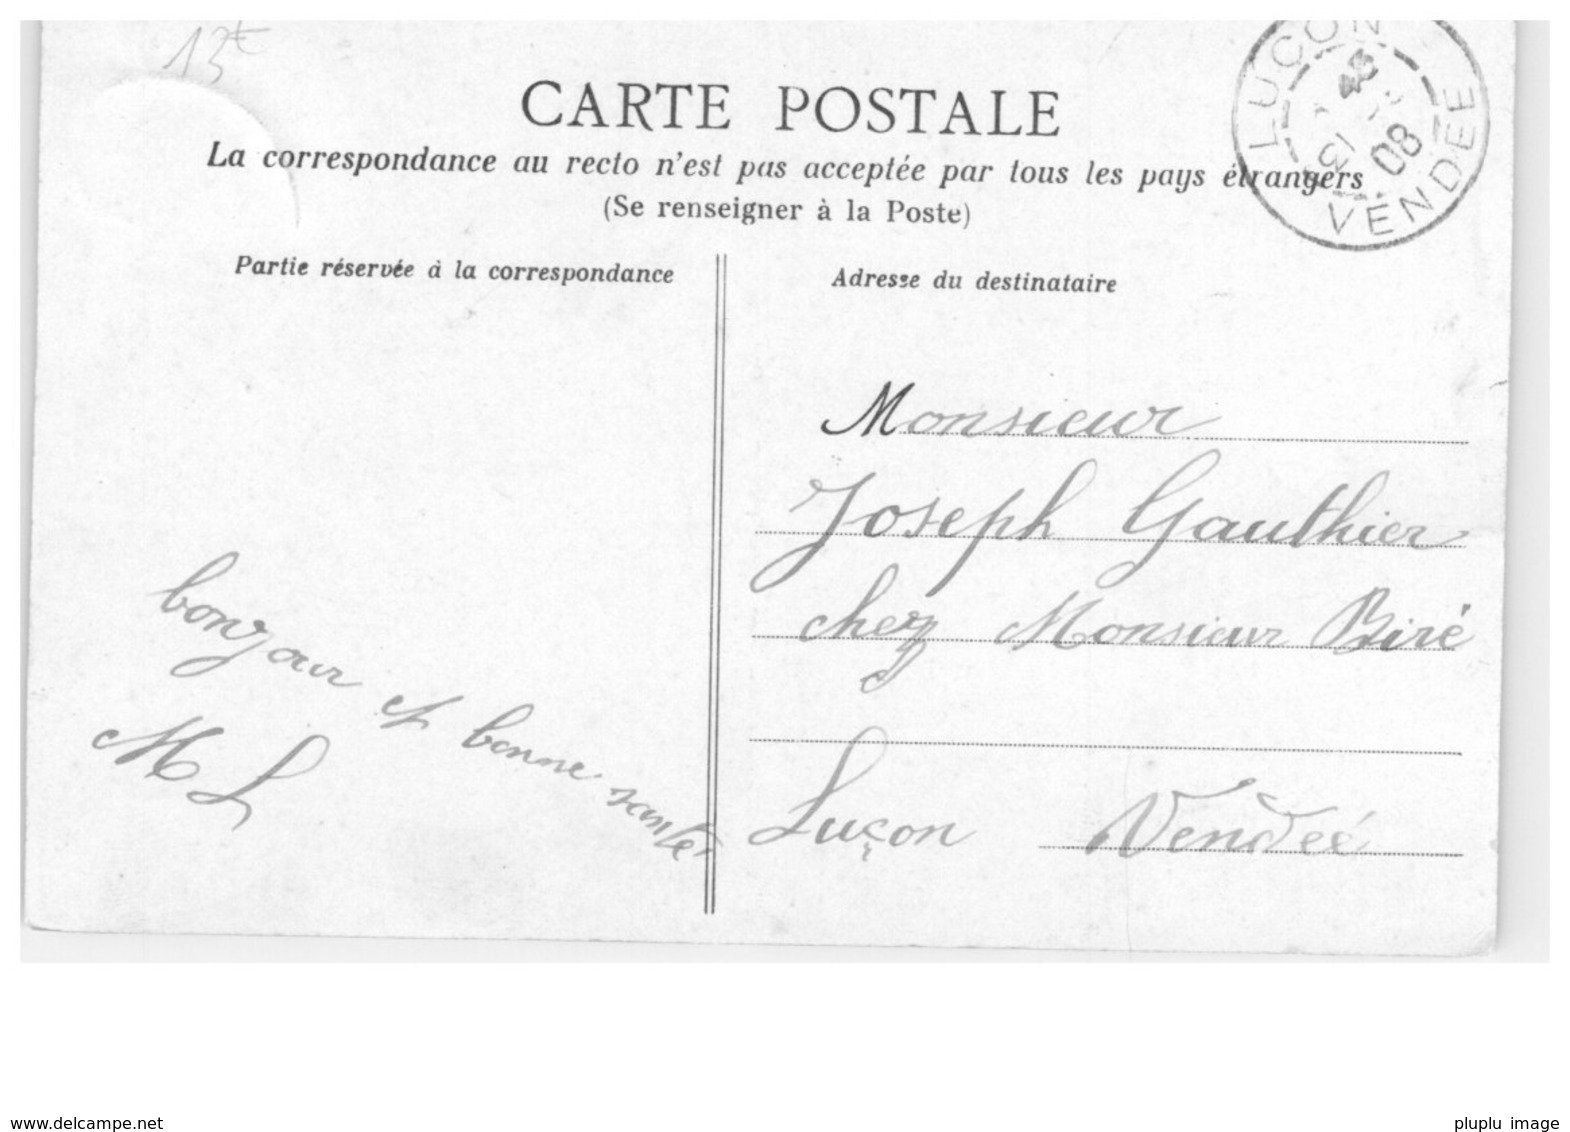 13€
CARTE POSTALE
La correspondance au recto n'est pas acceptée par tous les pays étrangers
(Se renseigner à la Poste)
LUÇON
08
VENDÉE
Partie réservée à la correspondance
Adresse du destinataire
Monsieur
Joseph Gauthier
chez Monsieur Biré
Luçon Vendée
bonjour et bonne santé
ML
www.delcampe.net
pluplu image